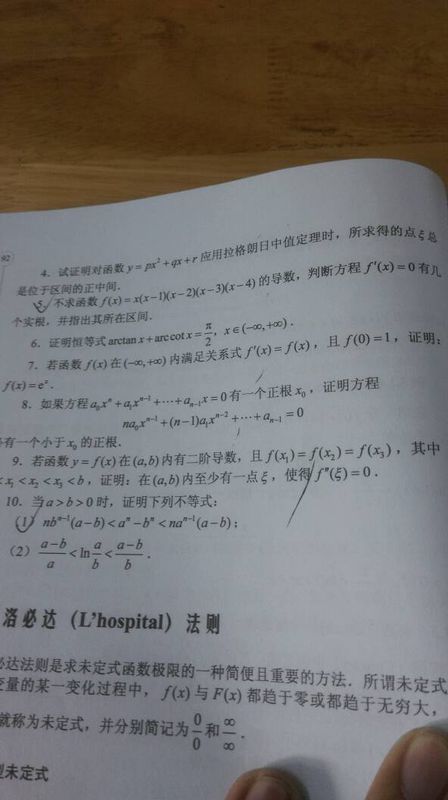 92
4. 试证明对函数 y = px² + qx + r 应用拉格朗日中值定理时，所求得的点 ξ 总
是位于区间的正中间．
5. 不求函数 f(x) = x(x−1)(x−2)(x−3)(x−4) 的导数，判断方程 f′(x) = 0 有几
个实根，并指出其所在区间．
6. 证明恒等式 arctan x + arc cot x = π/2，x ∈ (−∞,+∞)．
7. 若函数 f(x) 在 (−∞,+∞) 内满足关系式 f′(x) = f(x)，且 f(0) = 1，证明：
f(x) = eˣ．
8. 如果方程 a₀xⁿ + a₁xⁿ⁻¹ + ⋯ + aₙ₋₁x = 0 有一个正根 x₀，证明方程
na₀xⁿ⁻¹ + (n−1)a₁xⁿ⁻² + ⋯ + aₙ₋₁ = 0
有一个小于 x₀ 的正根．
9. 若函数 y = f(x) 在 (a,b) 内有二阶导数，且 f(x₁) = f(x₂) = f(x₃)，其中
< x₁ < x₂ < x₃ < b，证明：在 (a,b) 内至少有一点 ξ，使得 f″(ξ) = 0．
10. 当 a > b > 0 时，证明下列不等式：
(1) nbⁿ⁻¹(a−b) < aⁿ − bⁿ < naⁿ⁻¹(a−b)；
(2) (a−b)/a < ln a/b < (a−b)/b．
洛必达 (L'hospital) 法则
必达法则是求未定式函数极限的一种简便且重要的方法．所谓未定式
变量的某一变化过程中，f(x) 与 F(x) 都趋于零或都趋于无穷大，
就称为未定式，并分别简记为 0/0 和 ∞/∞．
型未定式